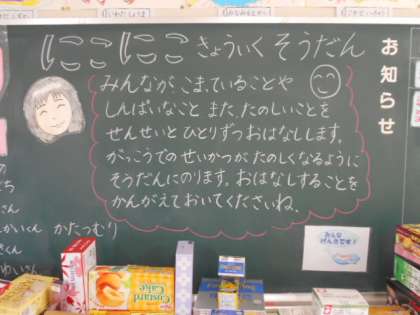 お知らせ
にこにこ きょういく そうだん
みんなが、こまっていることや
しんぱいなこと また、たのしいことを
せんせいと ひとりずつ おはなしします。
がっこうでの せいかつが たのしくなるように
そうだんにのります。おはなしすることを
かんがえておいてくださいね。
かたつむり
みんな
げんきです!
Custard
Cake